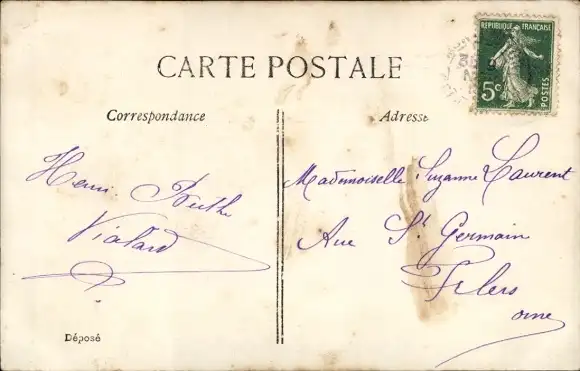 CARTE POSTALE
REPUBLIQUE FRANÇAISE
5c POSTES
Correspondance
Henri
Vialard
Déposé
Adresse
Mademoiselle Suzanne Laurent
Rue St Germain
Flers
orne